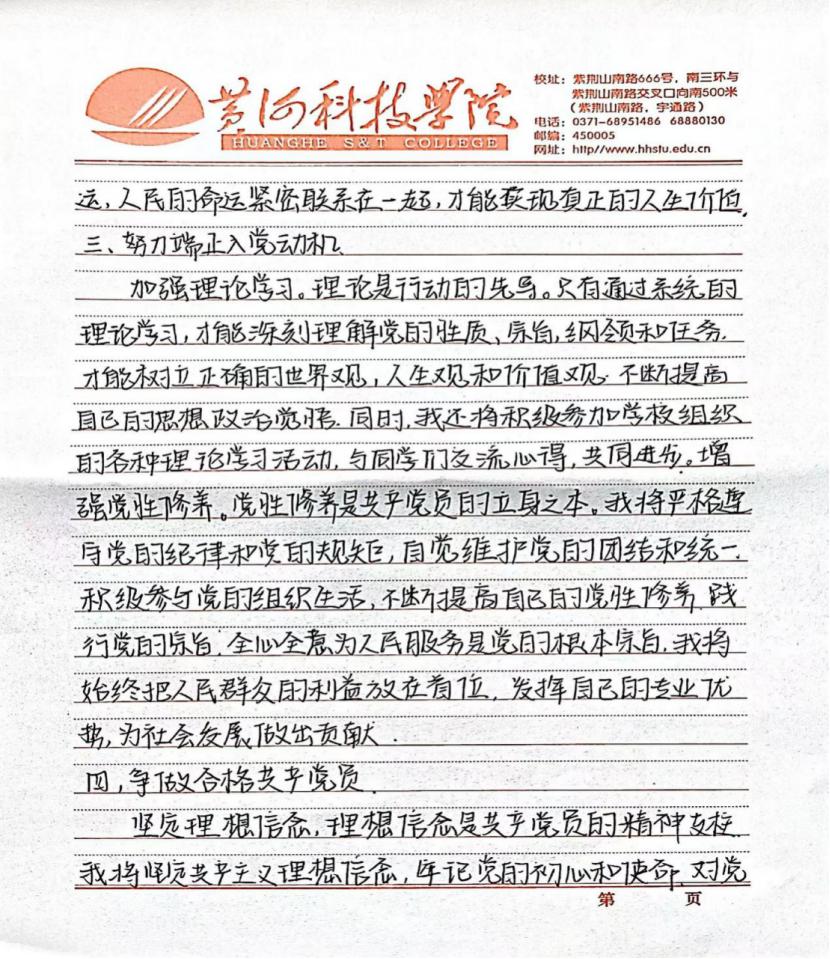 黄河科技学院
HUANGHE S&T COLLEGE
校址：紫荆山南路666号，南三环与
紫荆山南路交叉口向南500米
（紫荆山南路，宇通路）
电话：0371-68951486 68880130
邮编：450005
网址：http//www.hhstu.edu.cn
运，人民的命运紧密联系在一起，才能实现真正的人生价值.
三、努力端正入党动机.
加强理论学习。理论是行动的先导。只有通过系统的
理论学习，才能深刻理解党的性质、宗旨，纲领和任务.
才能树立正确的世界观，人生观和价值观.不断提高
自己的思想政治觉悟.同时，我还将积极参加学校组织
的各种理论学习活动，与同学们交流心得，共同进步。增
强党性修养。党性修养是共产党员的立身之本。我将严格遵
守党的纪律和党的规矩，自觉维护党的团结和统一.
积极参与党的组织生活，不断提高自己的党性修养.践
行党的宗旨.全心全意为人民服务是党的根本宗旨.我将
始终把人民群众的利益放在首位，发挥自己的专业优
势，为社会发展做出贡献.
四，争做合格共产党员.
坚定理想信念，理想信念是共产党员的精神支柱.
我将坚定共产主义理想信念，牢记党的初心和使命，对党
第 页